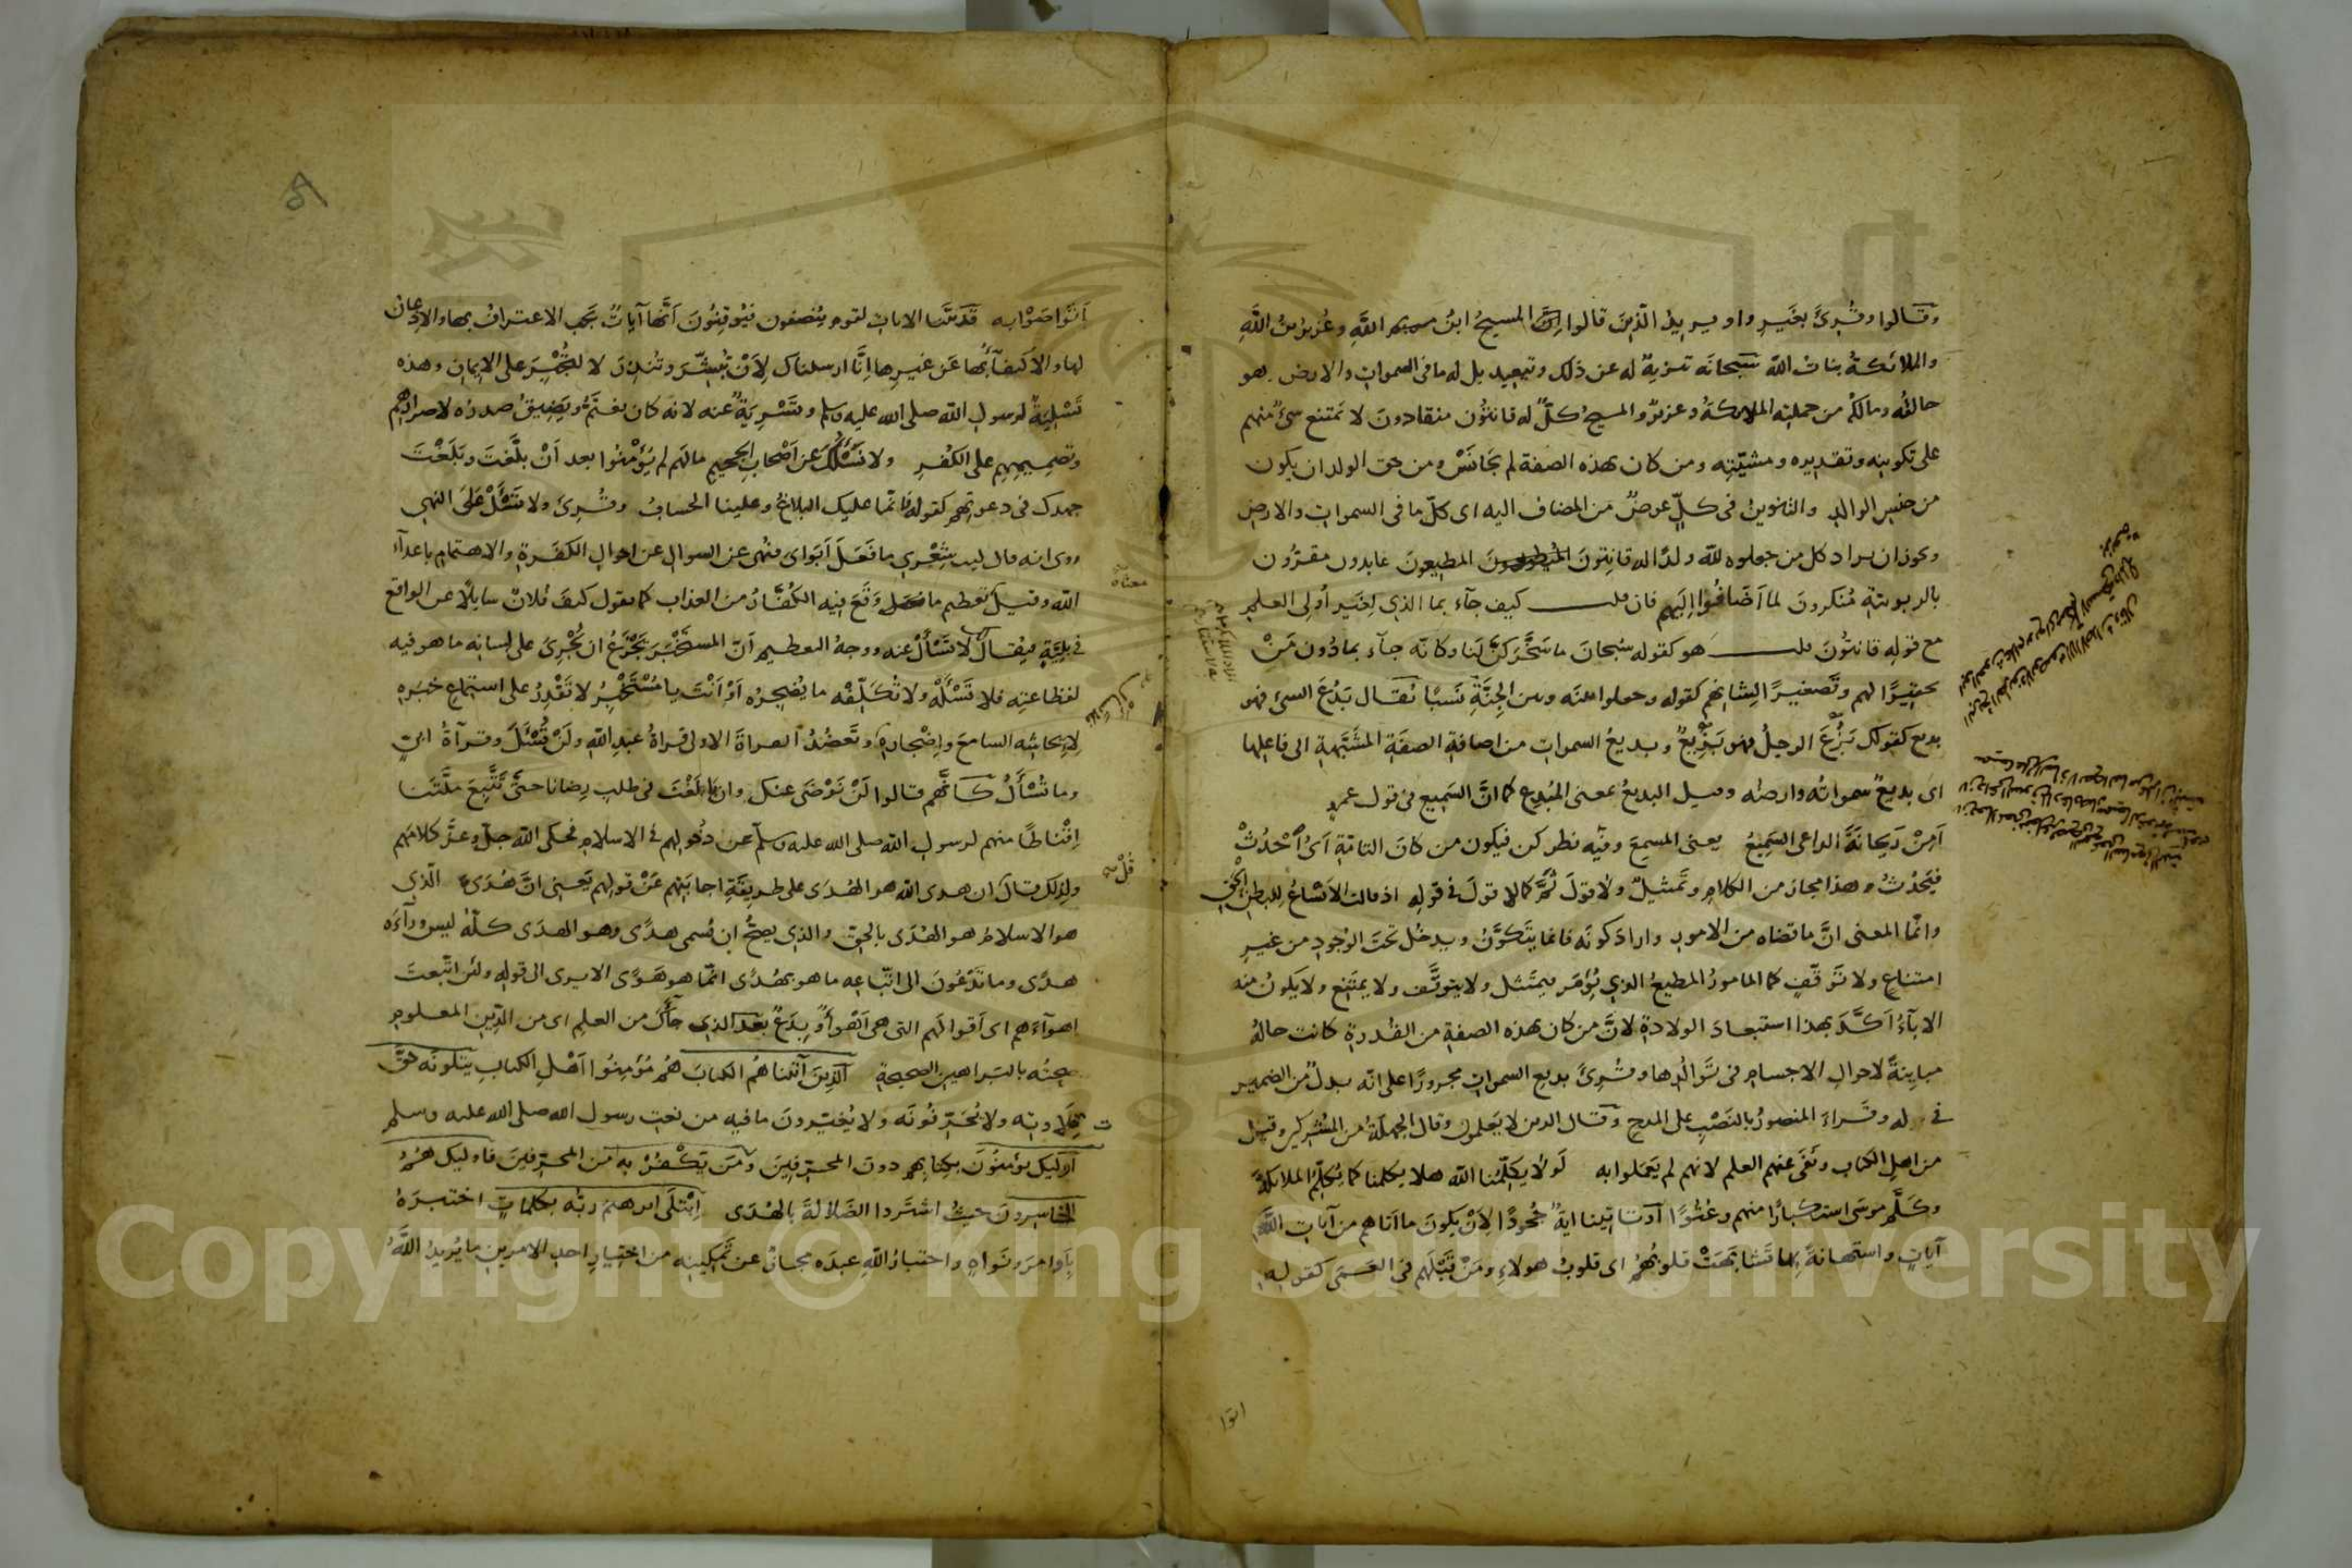 وقالوا وقرئ بغير واو يريد الذين قالوا المسيح ابن الله وعزير ابن الله
والملائكة بنات الله سبحانه تنزيه له عن ذلك وتبعيد بل له ما في السموات والارض هو
خالقه ومالكه من جملته الملائكة وعزير والمسيح كلٌّ له قانتون منقادون لا يمتنع شيء منهم
على تكوينه وتقديره ومشيّته ومن كان بهذه الصفة لم يجانس ومن حق الولد ان يكون
من جنس الوالد والتنوين في كلٍّ عوضٌ من المضاف اليه اى كلّ ما في السموات والارض
ويجوز ان يراد كل من جعلوه لله ولدًا له قانتون المطيعون عابدون مقرّون
بالربوبية مُنكرونَ لما أَضَافُوا إليهم فان قلت كيف جآء بما الذي لغير أولى العلم
مع قوله قانتُونَ قلت هو كقوله سُبحانَ ما سَخَّرَكُنَّ لَنَا وكانّه جآء بما دُون مَنْ
تحقيرًا لهم وتَصغيرًا لِشانهم كقوله وجعلوا بينَه وبين الجِنَّةِ نَسَبًا يُقال بَدُعَ الشيء فهو
بديع كقولك بَزُعَ الرجلُ فهو بَزِيعٌ وبديعُ السموات من اضافة الصفَةِ المشَبَّهة الى فاعلها
اى بديعٌ سمواتُه وارضُه وقيل البديعُ بمعنى المُبدِع كما انَّ السَميع في قول عمرو
أَمِنْ رَيحانَةَ الداعى السَّمِيعُ بمعنى المسمِعَ وفيه نظر كن فيكون من كانَ التامّةِ أىْ أُحْدُثْ
فيَحْدُثُ وهذا مجاز من الكلام وتَمثيلٌ ولا قولَ ثَمَّ كما لا قولَ في قوله اذ قالت الانساعُ للبطنِ الْحَقِ
وانّما المعنى انَّ ما قضاه من الامور وارادَ كونَه فانما يتَكَوَّنُ ويدخُل تحتَ الوُجود من غير
امتناعٍ ولا تَوَقّفٍ كما المامورُ المطيعُ الذي يُؤمَر فيمتَثل ولا يتوقَّف ولا يمتَنِع ولا يكونُ منه
الابآءُ أكَّدَ بهذا استبعادَ الولادةِ لانَّ من كان بهذه الصفةِ من القُدرةِ كانت حالُه
مباينةً لاحوال الاجسام في تَوالُدها وقُرئَ بديعِ السمواتِ مجرورًا على انّه بدلٌ من الضمير
في له وقَراءَ المنصورُ بالنَصْبِ على المدح وقال الذين لا يَعلمون وقال الجهلَةُ من المُشركين وقيل
من اهلِ الكتاب ونَفَى عنهم العلم لانهم لم يَعمَلوا به لَوْلا يكلِّمُنا الله هلا يكلمنا كما يُكلّمُ الملائكةَ
وكلَّمَ موسَى استكبارًا منهم وعُتُوًّا أو تأتينا آيةٌ جُحودًا لِأَنْ يكونَ ما اتاهم من آيات اللهِ
آياتٍ واستهانةً بها تَشابَهَتْ قلوبُهُمْ اى قلوبُ هولاءِ ومَنْ قَبْلَهم في العَمَى كقوله
اتوا
أتَوَاصَوْا به قد بَيَّنا الايات لقوم يُنصفون فيُوقِنُونَ أنَّها آياتٌ يجب الاعترافُ بها والاذعان
لها والاكتفآءُ بها عن غيرها إنّا ارسلناك لِأَنْ تُبشِّرَ وتُنذِرَ لا لِتُجْبِرَ على الايمان وهذه
تَسْلِيَةٌ لرسول الله صلى الله عليه وسلم وتَسْرِيَةٌ عنه لانه كان يغتَمُّ ويَضِيقُ صدرُه لاصرارِهم
وتصميمِهِم على الكُفرِ ولا نَسْئَلُكَ عن أصْحابِ الجَحيم مالَهم لم يُؤمِنُوا بعد أنْ بلَّغتَ وبَلَغْتَ
جهدك في دعوتهم كقوله فانّما عليك البلاغُ وعلينا الحسابُ وقُرِئَ ولا تَسْئَلْ عَلَى النهي
روى انه قال ليت شِعْرِى ما فَعَلَ أَبَوَاىَ فنُهى عن السوال عن احوال الكَفَرة والاهتمام باعدآء
الله وقيل تعظيم ما وَقَعَ فيه الكُفّارُ من العذاب كما تقول كيفَ فُلانٌ سايلًا عن الواقع
معناه
في بليّةٍ فيُقالُ لا تَسْأَلْ عنه ووجهُ التعظيم أنّ المستَخْبَرَ يَجْزَعُ ان يُجْرِىَ على لسانه ما هو فيه
لفظاعتِه فلا تَسْئَلْهُ ولا تُكَلِّفْه ما يُضجِرُه أوْ أنْتَ يا مُسْتَخْبِرُ لا تَقْدِرُ على استماعِ خبَرِه
لإيحاشِه السامعَ وإضْجارِه وتَعضُدُ القراءةَ الاولى قراءةُ عبدِ اللهِ ولَنْ تُسْئَلَ وقرآءةُ أبىٍّ
وما تُسْأَلُ كانّهم قالوا لَنْ نَرْضَى عنك وان أبلَغْتَ في طلب رِضانا حتَّى تَتَّبِعَ ملَّتَنا
اِقْناطًا منهم لرسول الله صلى الله عليه وسلّم عن دُخولِهم في الاسلام فحكى الله جلّ وعزّ كلامَهم
ولذلك قال ان هدى الله هو الهُدَى على طريقَةِ اجابَتِهم عَنْ قولِهم يَعنى انَّ هُدَى الّذي
قُلْ
هو الاسلامُ هو الهُدَى بالحق والذي يصحُّ ان يُسمى هدًى وهو الهدَى كلّهُ ليس ورآءَه
هدًى وما تَدْعُونَ الى اتّباعِه ما هو بهُدًى انّما هو هَوًى الا يرى الى قولِه ولئن اتّبعتَ
اهوآءَهم اى أقوالَهم التى هى أهْوَاءٌ وبِدَعٌ بَعْد الذي جآءَكَ من العلمِ اى من الدّينِ المعلومِ
صحتُه بالبَراهين الصحيحة الَّذِينَ آتَيناهُمُ الكتابَ هُمْ مُؤمِنُوا أهْلِ الكتابِ يتلونَه حَقَّ
تِلَاوتِه ولا يُحَرِّفُونَه ولا يُغيّرونَ ما فيه من نعت رسول الله صلى الله عليه وسلم
أولئِكَ يؤمِنُونَ بِكتابِهم دونَ المحرِّفِينَ وَمَن يَكْفُرْ بِه مِن المحرّفينَ فاوليك هُمُ
الخاسِرونَ حيثُ اشتَروا الضَلالةَ بالهُدَى اِبْتَلَى ابرهيمَ ربُّه بكلماتٍ اختبرَهُ
بأوامِرَ ونَواهٍ واختبارُ اللهِ عبدَه مجازٌ عن تَمكِينِه من اختيارِ احدِ الامرينِ ما يُريدُ اللهُ
Copyright © King Saud University